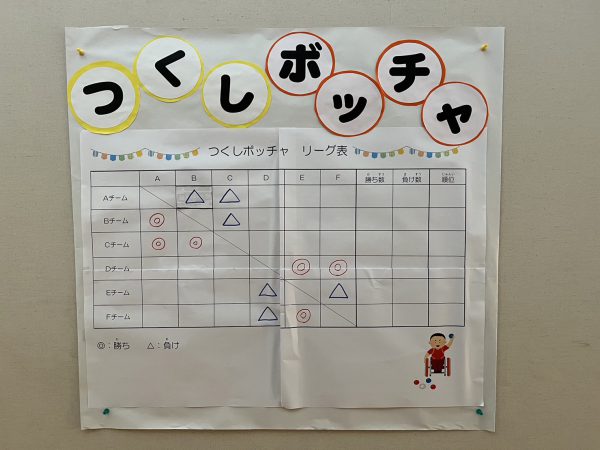 つくしボッチャ
つくしボッチャ リーグ表
A B C D E F 勝ち数 負け数 順位
Aチーム △ △
Bチーム ◎ △
Cチーム ◎ ◎
Dチーム ◎ ◎
Eチーム △ △
Fチーム △ ◎
◎：勝ち △：負け